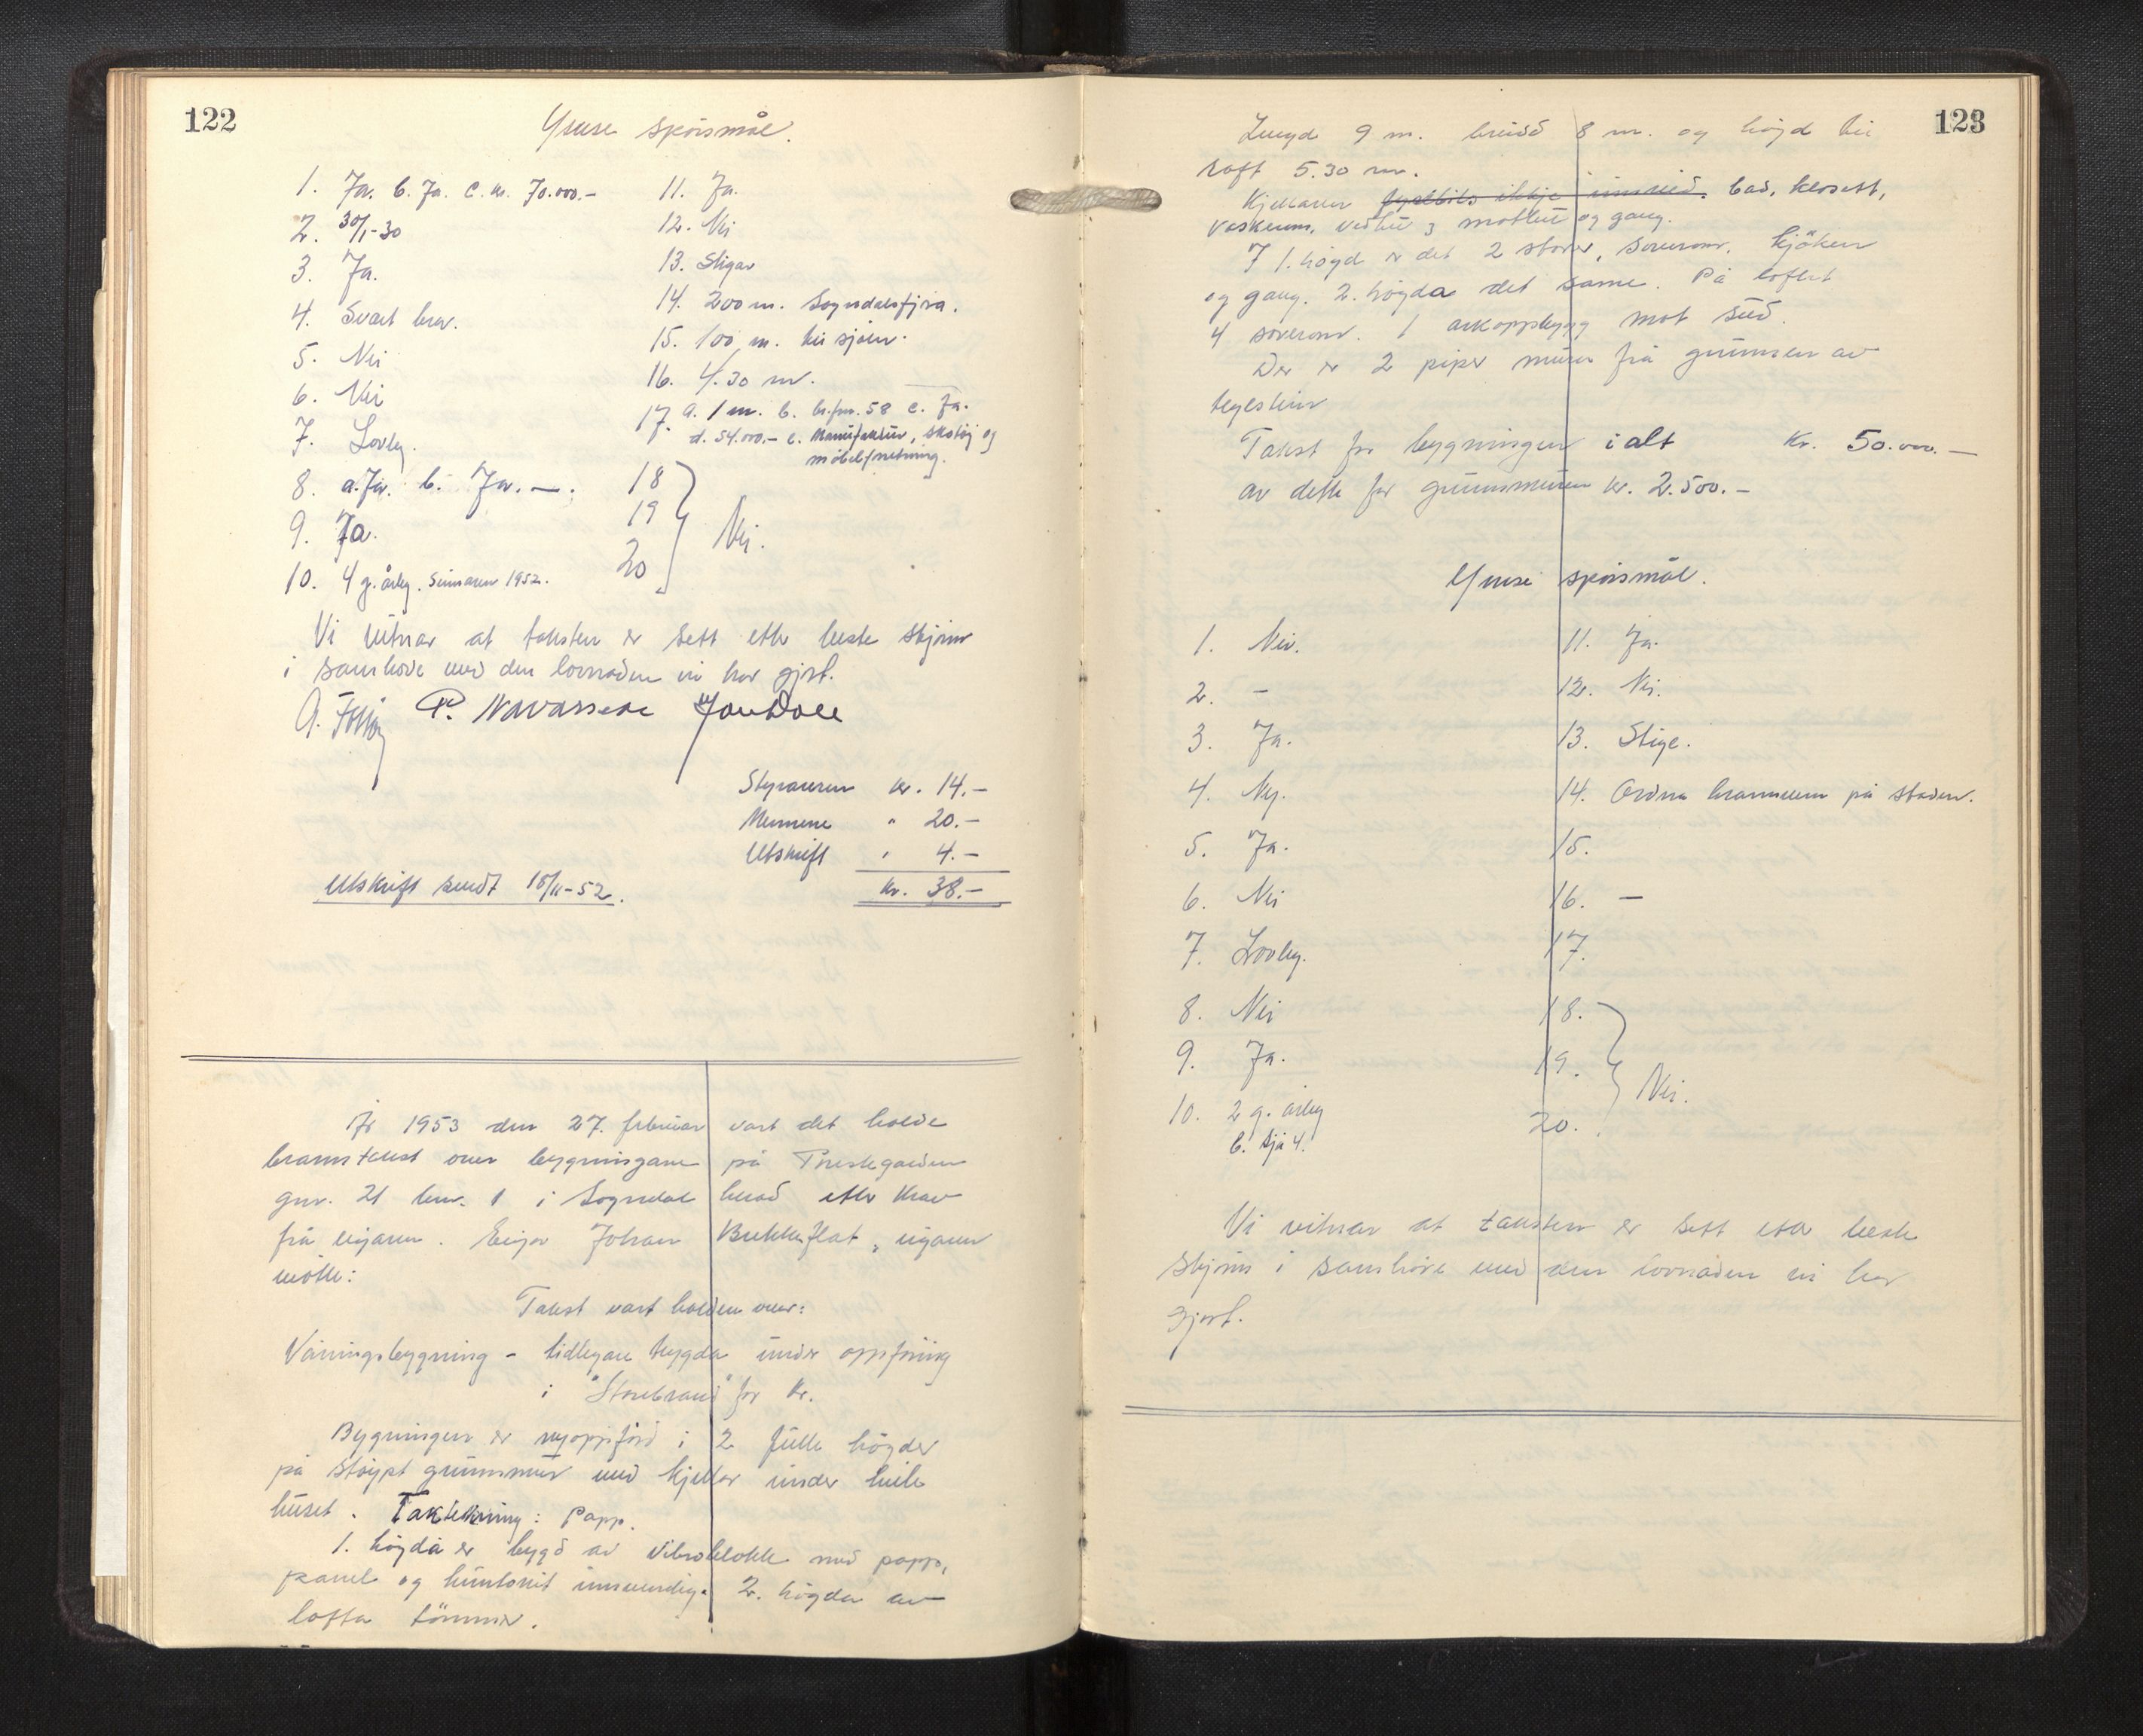 122
Ymse spörsmål.
1. Ja. b. Ja. c. kr. 70.000.-
2. 30/1-30
3. Ja.
4. Svært bra.
5. Nei
6. Nei
7. Lovleg.
8. a. Ja. b. Ja. —.
9. Ja.
10. 4 g. årleg. Sumaren 1952.
11. Ja.
12. Nei
13. Stigar
14. 200 m. Sogndalsfjøra.
15. 100 m. til sjöen.
16. 4.30 m.
17. a. 1 m. b. br.fnr. 58 c. Ja.
d. 54.000.- e. Manufaktur, skotöj og
möbelforretning.
18
19
20
Nei.
Vi vitnar at taksten er sett etter beste skjönn
i samhøve med den lovnaden vi har gjort.
P. Navarsete Jon Dale
Styraren kr. 14.-
Mennene " 20.-
Utskrift " 4.-
kr. 38.-
Utskrift sendt 18/11-52.
År 1953 den 27. februar vart det halde
branntakst over bygningane på Prestegarden
gnr. 21 bnr. 1 i Sogndal herad etter krav
frå eigaren. Eigar Johan eigaren
møtte:
Takst vart halden over:
Våningsbygning - tidlegare trygda under oppføring
i "Storebrand" for kr.
Bygningen er nyoppførd i 2 fulle høgder
på støypt grunnmur med kjellar under heile
huset. Taktekning: Papp.
1. høgda er bygd av vibroblokk med papp,
panel og huntonit innvendig. 2. høgda av
lafta tömmer.
123
Lengd 9 m. breidd 8 m. og høgd til
raft 5.30 m.
Kjellaren ikkje innreid. bad, klosett,
vaskerom, vedbu, 3 matbu og gang.
I 1. høgd er det 2 stover, soverom, kjöken
og gang. 2. høgda det same. På loftet
4 soverom. 1 arkoppbygg mot sud.
Der er 2 piper mura frå grunnen av
teglstein
Takst for bygningen i alt kr. 50.000.—
av dette for grunnmuren kr. 2.500.-
Ymse spörsmål.
1. Nei.
2. -
3. Ja.
4. Ny.
5. Ja.
6. Nei
7. Lovleg.
8. Nei
9. Ja.
10. 2 g. årleg
b. Sjå 4.
11. Ja.
12. Nei.
13. Stige.
14. Ordna brannvern på staden.
15.
16. —
17.
18.
19.
20.
Nei.
Vi vitnar at taksten er sett etter beste
skjönn i samhøve med den lovnaden vi har
gjort.